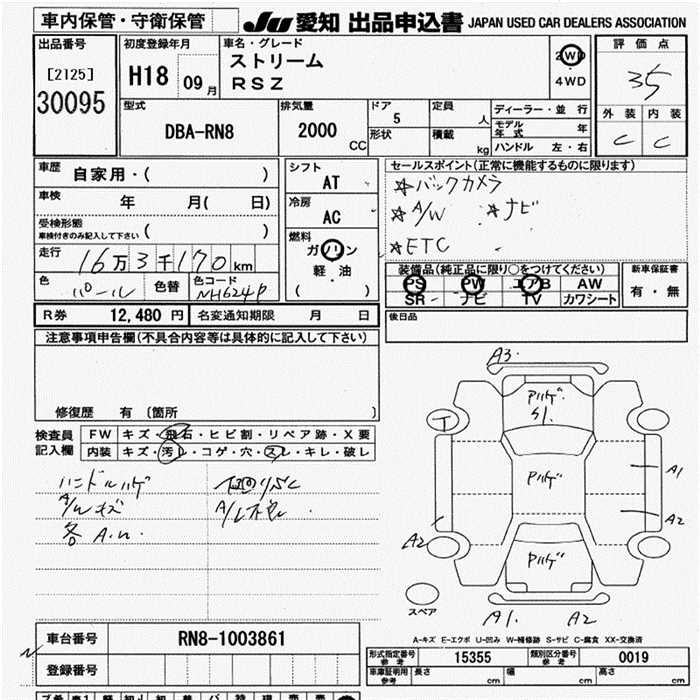 車内保管・守衛保管
JU 愛知 出品申込書 JAPAN USED CAR DEALERS ASSOCIATION
出品番号
[2125]
30095
初度登録年月
H18 09月
車名・グレード
ストリーム
RSZ
2WD
4WD
評価点
3.5
外装 内装
C C
型式
DBA-RN8
排気量
2000 CC
ドア
5
形状
定員
人
積載
kg
ディーラー・並行
モデル年式 年
ハンドル 左・右
車歴
自家用・( )
車検
年 月( 日)
受検形態
車検付きのみ記入して下さい ( )
走行
16万3千170km
色
パール
色替
色コード
NH624P
シフト
AT
冷房
AC
燃料
ガソリン
軽・油
( )
セールスポイント(正常に機能するものに限ります)
☆バックカメラ
☆A/W ☆ナビ
☆ETC
装備品(純正品に限り○をつけてください)
PS PW エアB AW
SR ナビ TV カワシート
新車保証書
有・無
R券 12,480 円 名変通知期限 月 日
後日品
注意事項申告欄(不具合内容等は具体的に記入して下さい)
修復歴 有 〔箇所 〕
検査員記入欄
FW キズ・飛石・ヒビ割・リペア跡・X要
内装 キズ・汚レ・コゲ・穴・スレ・キレ・破レ
ハンドルハゲ
A/Wキズ
各A.U.
A3
アハゲ
S1
T
アハゲ
A1
A2
A2
アハゲ
スペア
A1. A2
A-キズ E-エクボ U-凹み W-補修跡 S-サビ C-腐食 XX-交換済
車台番号 RN8-1003861
登録番号
形式指定番号 参考 15355
類別区分番号 参考 0019
車庫証明用 参考 長さ cm 幅 cm 高さ cm